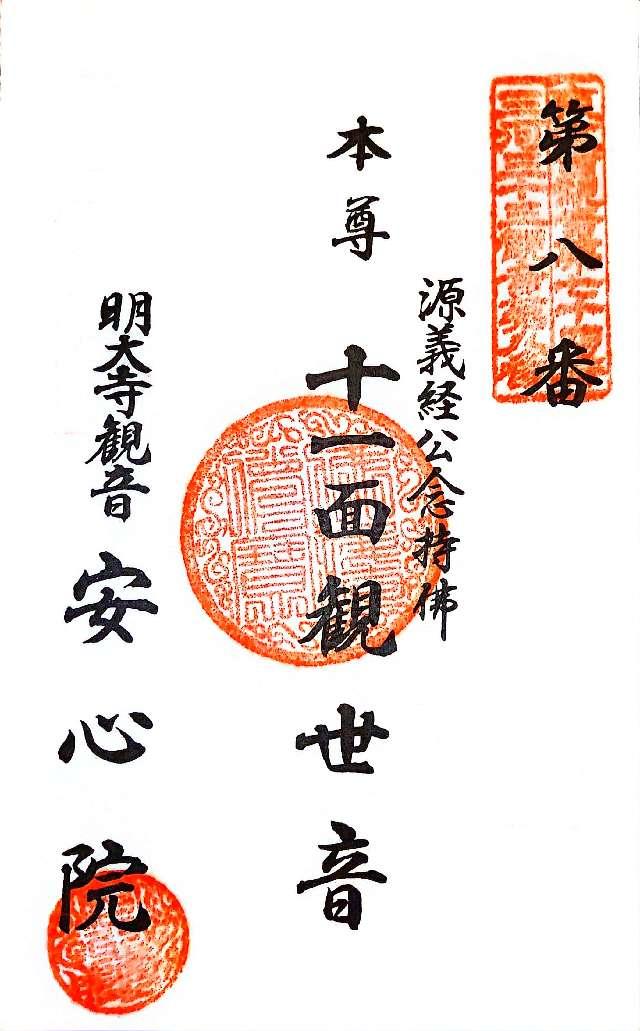 第八番
源義経公念持佛
本尊 十一面観世音
明大寺観音 安心院